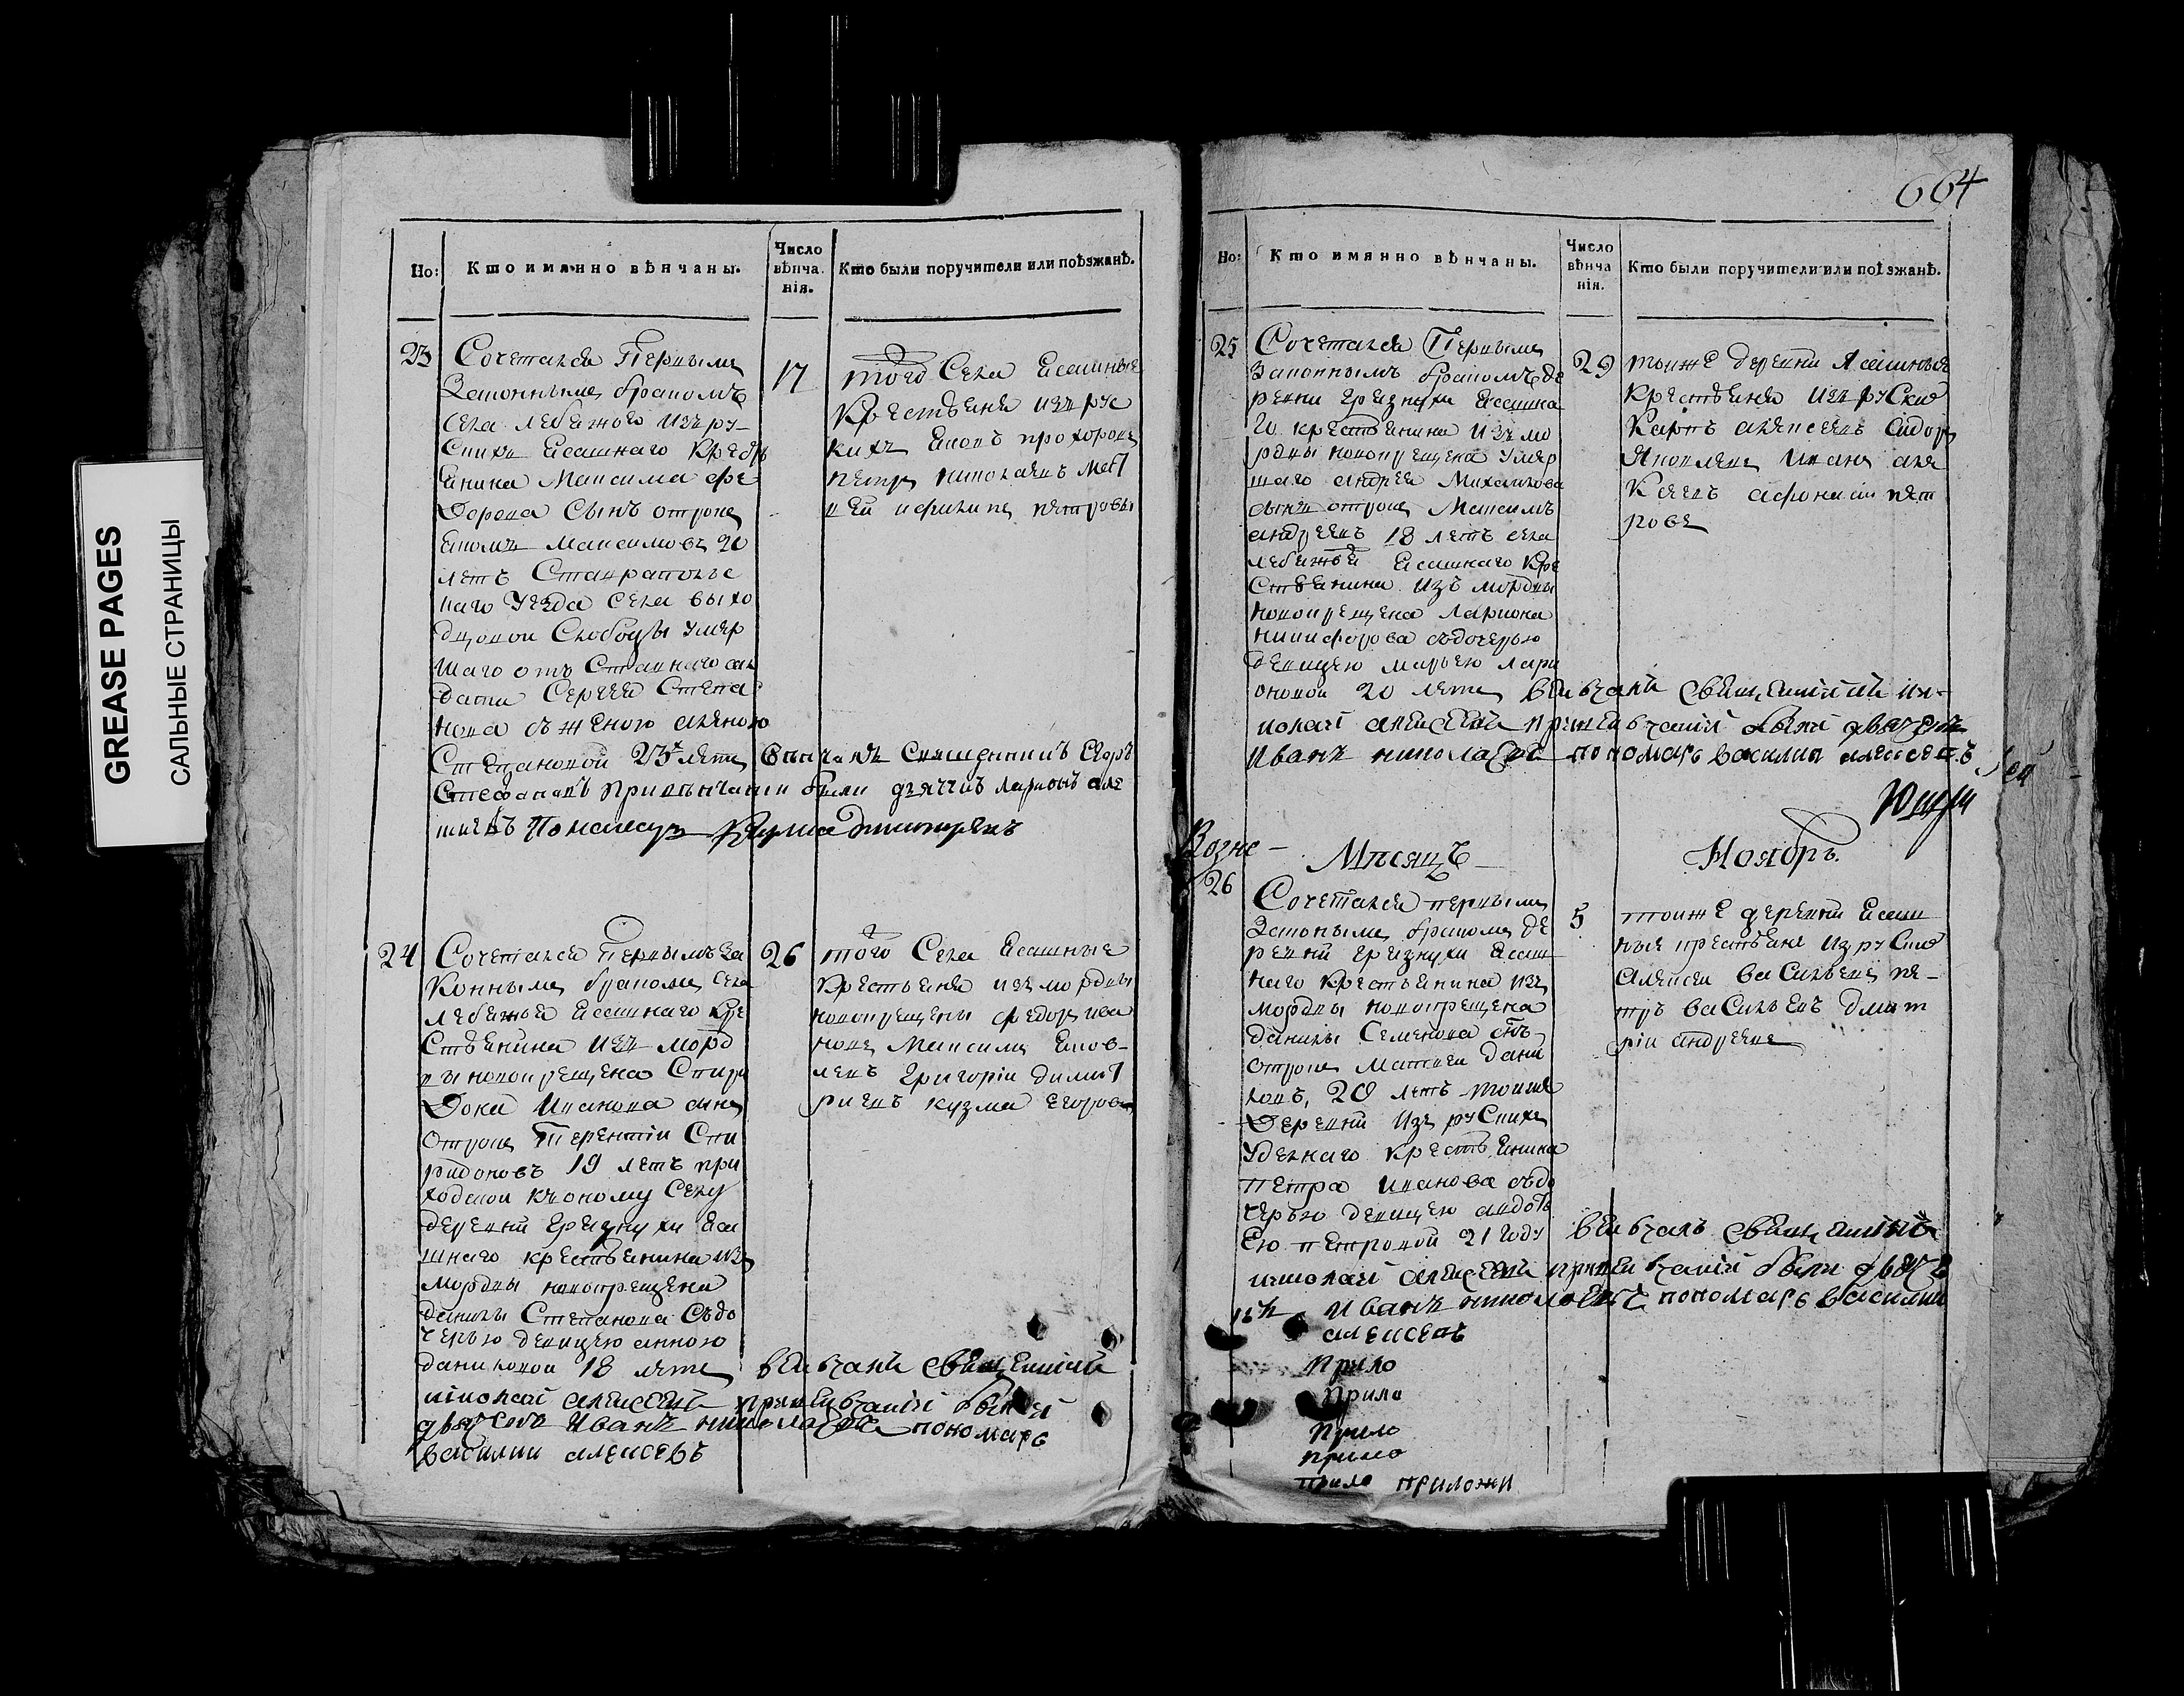 GREASE PAGES
САЛЬНЫЕ СТРАНИЦЫ
Но:
Кто имянно вѣнчаны.
Число вѣнча нія.
Кто были поручители или поѣзжанѣ.
23
Сочетался Первымъ
Законнымъ бракомъ
села лебяжьго изъ ру-
скихъ ясашнаго Кресть
янина Максима Фе
дорова сынъ отрокъ
Максимовъ 20
летъ Ставрапольс
каго уезда села
слободы умер
шаго отъ ставнаго сал
дата Сергея Степа
нова съ женою
Степановой 23х летъ венчалъ священникъ
Стефановъ при венчании были дьячикъ Ларионъ але
17
того села ясашные
крестьяня изъ рус
кихъ прохоровъ
петръ николаевъ мат
вей и филипъ петровы
24
Сочетался первымъ за
коннымъ бракомъ села
лебяжья ясашнаго кре
стьянина изъ морд
вы новокрещена Спири
дона Иванова сынъ
отрокъ Терентіи Спи
ридоновъ 19 летъ при
ходской къ оному селу
деревни грязнухи яса
шнаго крестьянина изъ
мордвы новокрещена
данилы Степанова съ до
черью девицею анною
даниловой 18 летъ венчалъ священникъ
николай алексеевъ при венчаніи были
дьячекъ Иванъ николаевъ пономарь
василии алексеевъ
26
того села ясашные
крестьяня изъ мордвы
новокрещены федоръ ива
новъ Максимъ яков-
левъ григоріи димит
риевъ кузма егоровъ
664
Но:
Кто имянно вѣнчаны.
Число вѣнча нія.
Кто были поручители или поѣзжанѣ.
25
Сочетался Первымъ
Законнымъ бракомъ де
ревни грязнухи ясашна
го крестьянина изъ мо
рдвы новокрещена умер
шаго андрея Михаилова
сынъ отрокъ Максимъ
андреевъ 18 летъ села
лебяжьей ясашнаго кре
стьянина изъ мордвы
новокрещена лариона
никифорова съ дочерью
девицею марьею лари
оновой 20 летъ венчалъ священникъ ни-
колай алексеевъ при венчаніи были дьячекъ
Иванъ николаевъ пономарь василии алексеевъ
29
тоиже деревни ясашныя
крестьяня изъ руских
Карпъ алексеевъ сидоръ
яковлевъ иванъ але
ксеевъ афонасіи пет
ровъ
Месяцъ
Ноябрь.
26
Сочетался первымъ
Законымъ бракомъ де
ревни грязнухи ясаш
наго крестьянина изъ
мордвы новокрещена
данилы Семенова снъ
отрокъ Матвеи дани
ловъ, 20 летъ тоиже
деревни изъ рускихъ
удельнаго крестьянина
петра иванова съ до
черью девицею авдоть
ею петровой 21 году венчалъ священникъ
николай алексеевъ при венчаніи были дьяче
Иванъ николаевъ пономарь василии
алексеевъ
5
тоиже деревни ясаш
ныя крестьяня изъ руских
алексеи васильевъ пе-
тръ васильевъ дмит
ріи андреевъ
Прило
Прило
Прило
прило
прило приложи